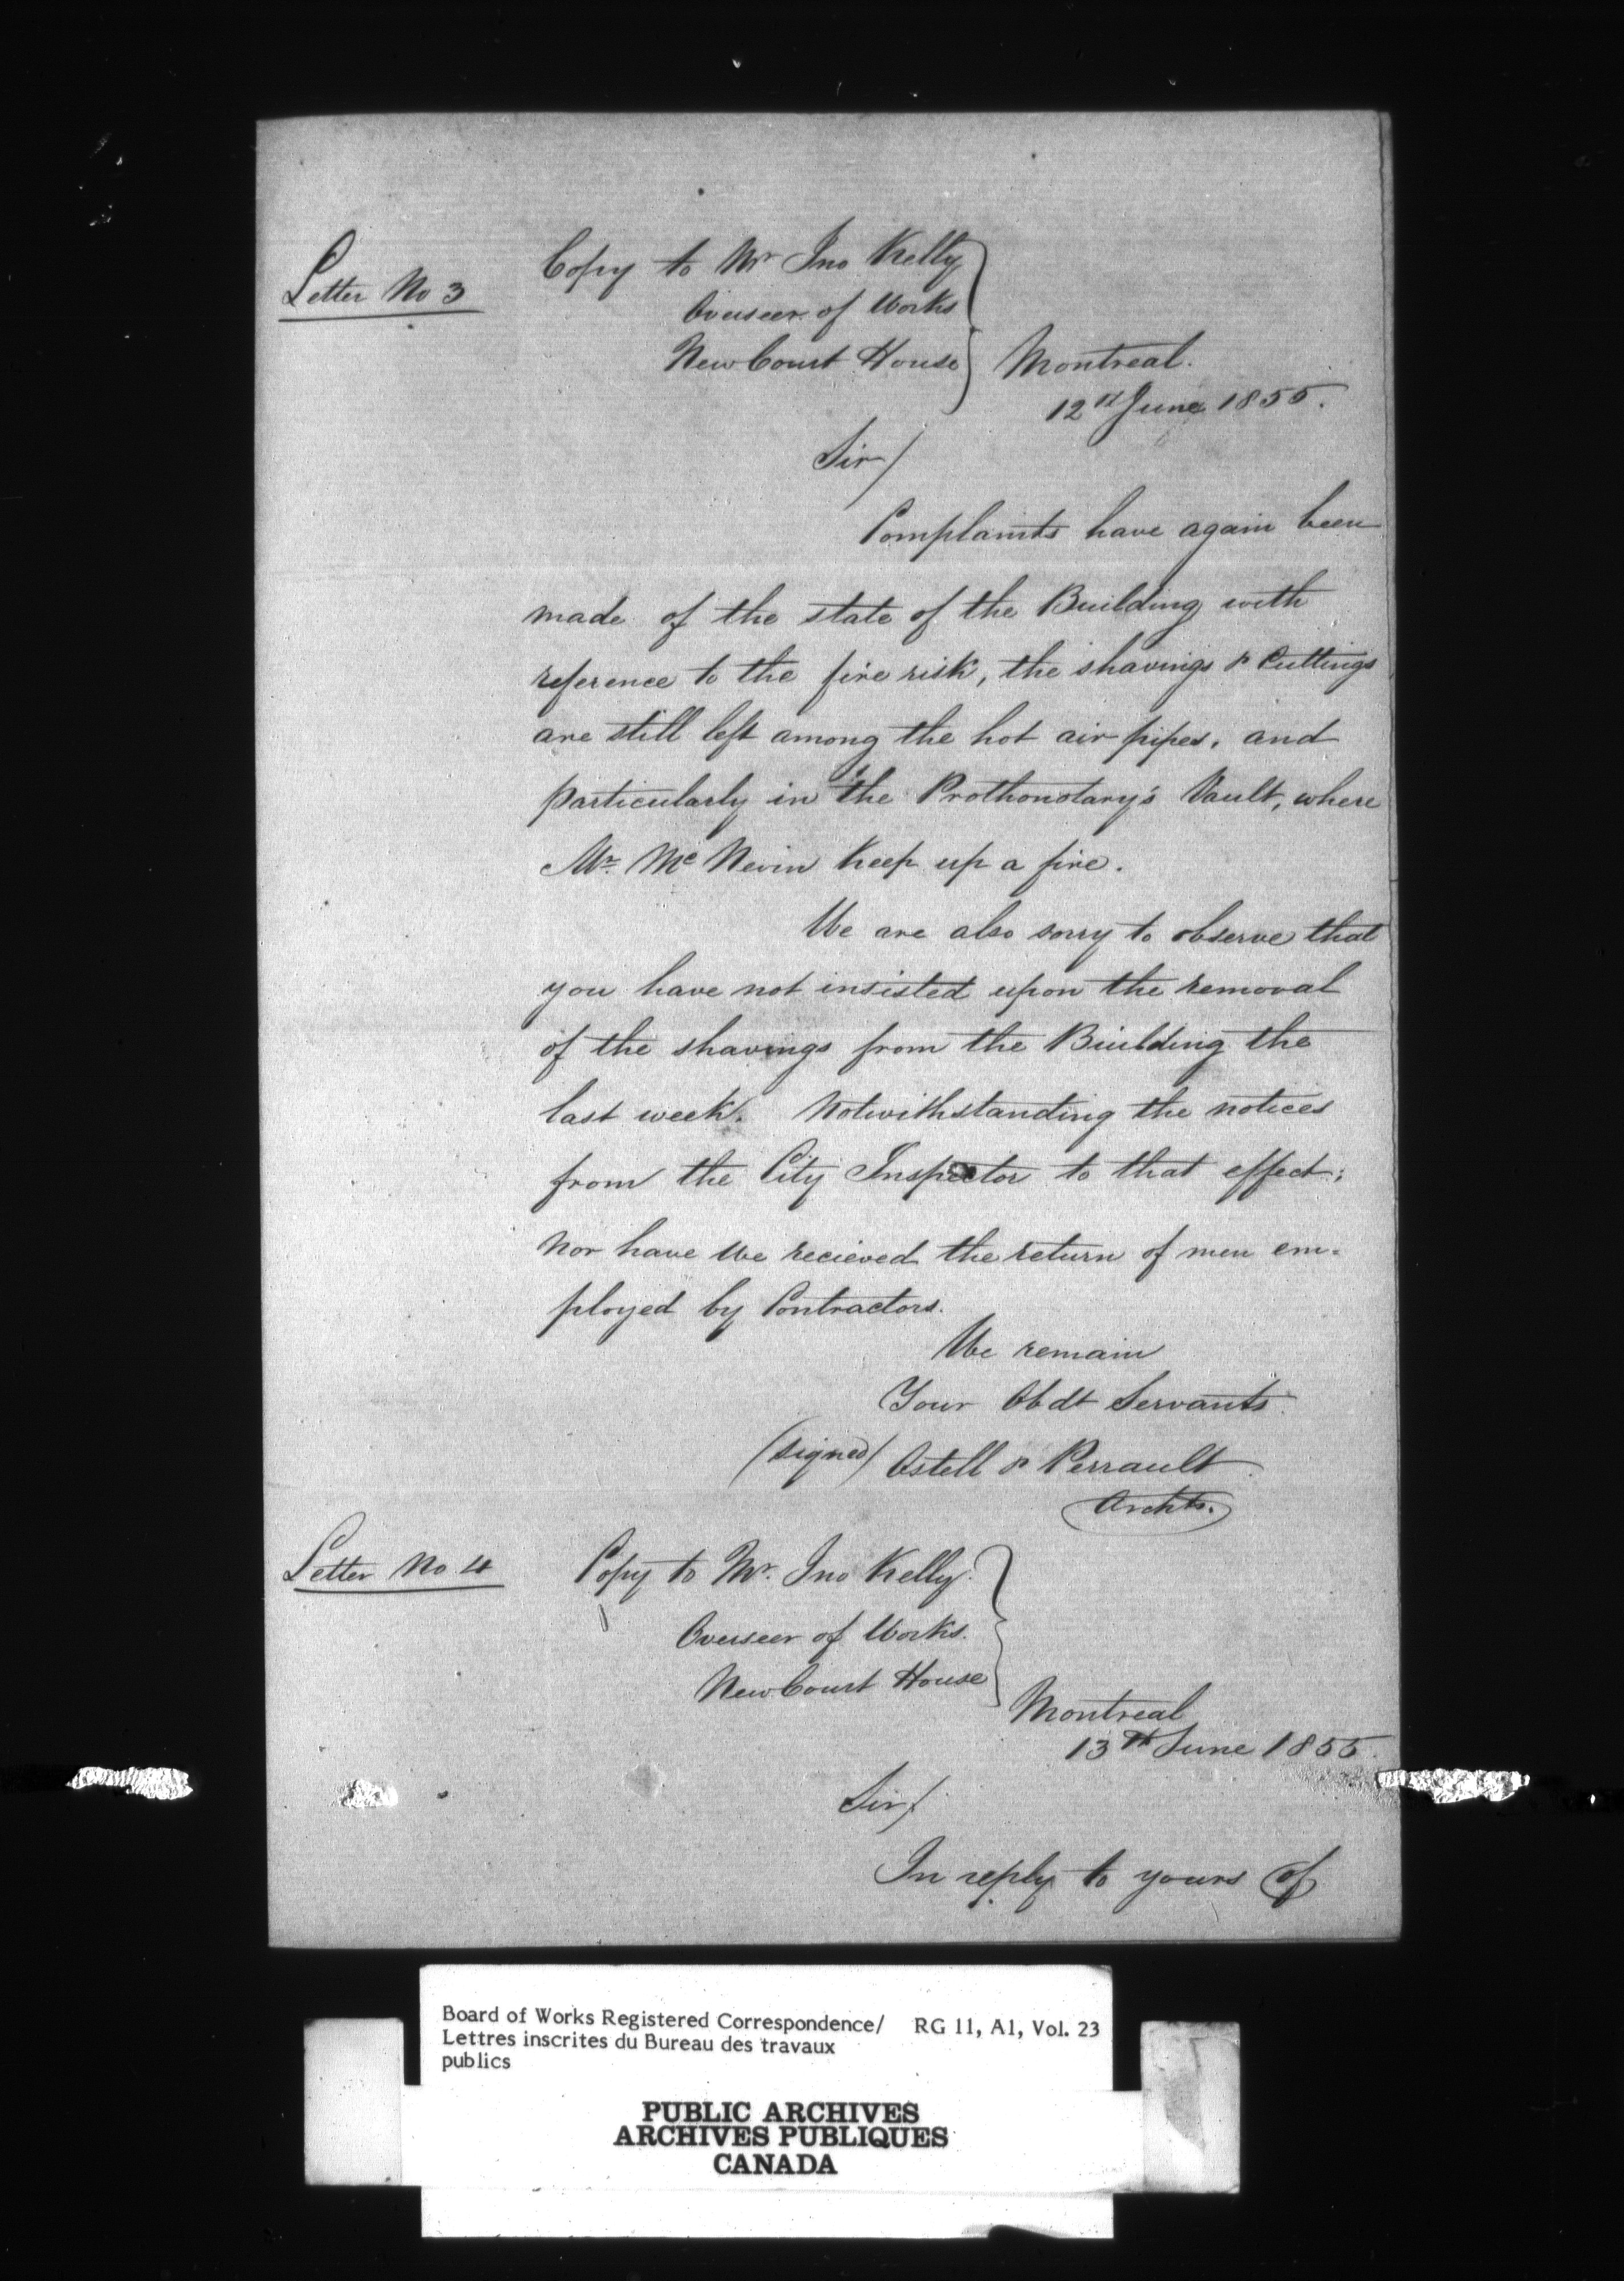 Letter No 3
Copy to Mr Jno Kelly
Overseer of Works
New Court House
Montreal.
12th June 1855.
Sir/
Complaints have again been
made of the state of the Building with
reference to the fire risk, the shavings & Cuttings
are still left among the hot air pipes, and
particularly in the Prothonotary's Vault, where
Mr. Mc Nevin Keep up a fire.
We are also sorry to observe that
you have not insisted upon the removal
of the shavings from the Building the
last week. Notwithstanding the notices
from the City Inspector to that effect;
nor have we recieved the return of men em-
ployed by Contractors.
We remain
Your Obdt Servants
(signed) Ostell & Perrault
Archts.
Letter No 4
Copy to Mr. Jno Kelly.
Overseer of Works.
New Court House
Montreal
13th June 1855.
Sir/
In reply to yours of
Board of Works Registered Correspondence/ RG 11, A1, Vol. 23
Lettres inscrites du Bureau des travaux
publics
PUBLIC ARCHIVES
ARCHIVES PUBLIQUES
CANADA